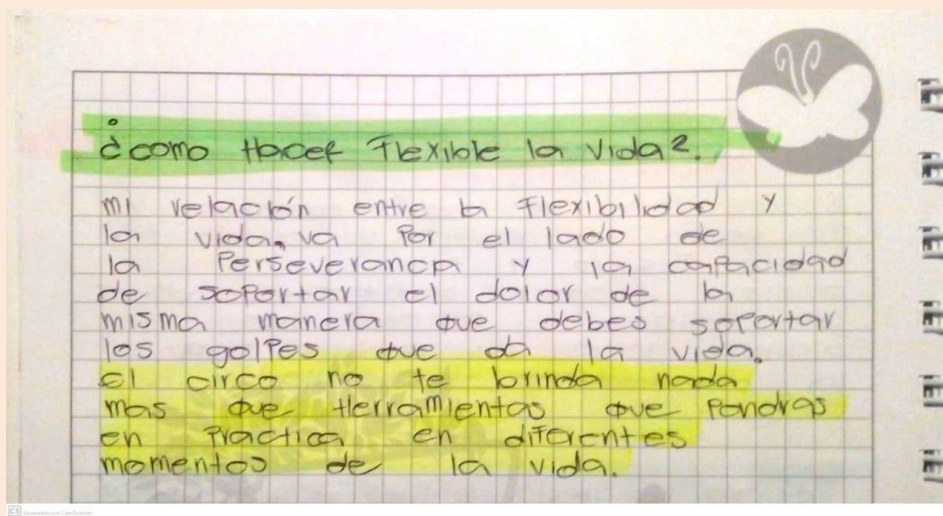 ¿como Hacer Flexible la vida?.
mi relación entre la Flexibilidad y
la vida, va Por el lado de
la Perseverancia y la capacidad
de soportar el dolor de la
misma manera que debes soportar
los golpes que da la vida.
el circo no te brinda nada
mas que Herramientas que Pondras
en Practica en diferentes
momentos de la vida.
CS Escaneado con CamScanner